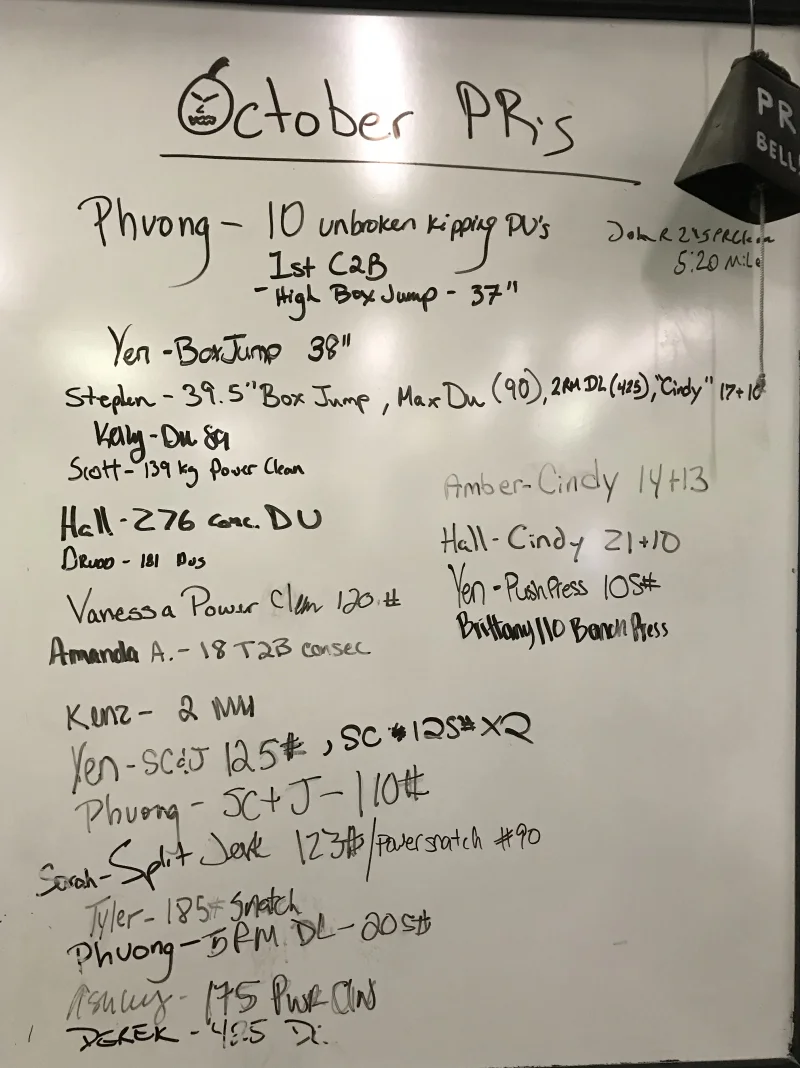 October PR's
PR
BELL!
Phuong - 10 unbroken kipping PU's
1st C2B
- High Box Jump - 37"
John R 275 PR Clean
5:20 Mile
Yen - Box Jump 38"
Stephen - 39.5" Box Jump, Max Du (90), 2RM DL (425), "Cindy" 17+10
Kelly - Du 89
Scott - 139 kg Power Clean
Amber - Cindy 14+13
Hall - 276 consc. DU
Hall - Cindy 21+10
181 Dus
Yen - Push Press 105#
Vanessa Power Clean 120#
Brittany 110 Bench Press
Amanda A. - 18 T2B consec
Kenz - 2 MU
Yen - SC&J 125#, SC 125# X2
Phuong - SC+J - 110#
Sarah - Split Jerk 123# / Power snatch #90
Tyler - 185# Snatch
Phuong - 5RM DL - 205#
Ashley - 175 Pwr Cln
DEREK - 425